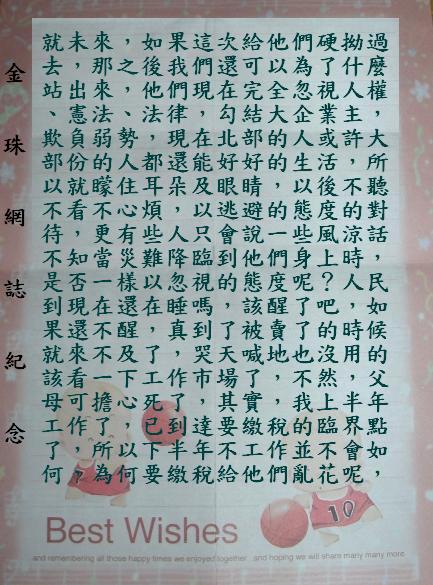 就未來，如果這次給他們硬拗過
去，那之後我們還可以為了什麼
站出來，他們現在完全忽視人權，
、憲法、法律，勾結大企業主
欺負弱勢，現在北部的人或許，大
部份的人都還能好好的生活，所
以就矇住耳朵及眼睛，以後不聽
不看不心煩，以逃避的態度的對
待，更有些人只會說一些風涼話，
不知當災難降臨到他們身上時，
是否一樣以忽視的態度呢？人民
到現在還在睡嗎，該醒了吧，如
果還不醒，真到了被賣了的時候
就來不及了，哭天喊地也沒用的
該看一下工作市場了，不然，父
母可擔心死了，其實，我上半年
工作了，已到達要繳稅的臨界點
了，所以下半年不工作並不會如，
何？為何要繳稅給他們亂花呢，
金珠網誌紀念
10
Best Wishes
and remembering all those happy times we enjoyed together...and hoping we will share many many more